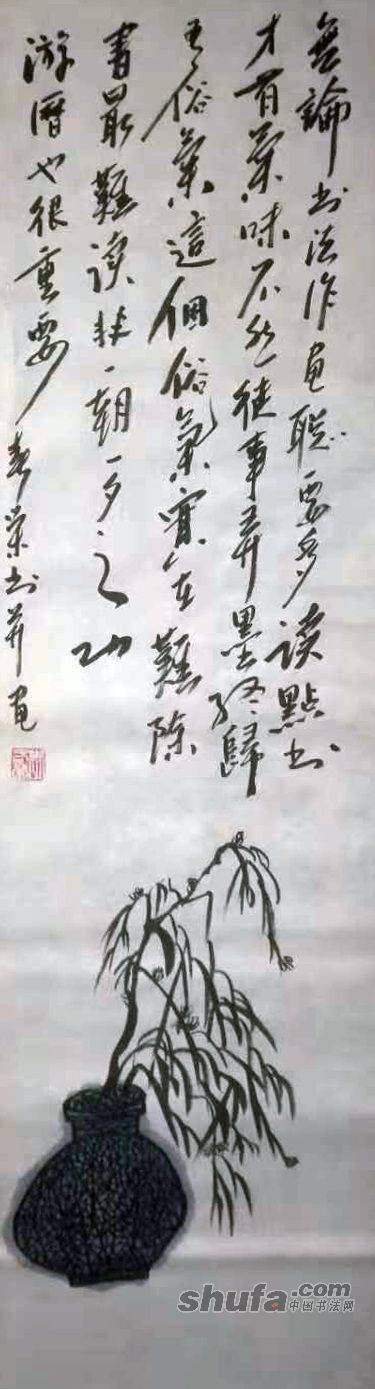 無論书法作画要多读點书
才有氣味不然徒事弄墨终歸
俗氣這個俗氣實在難除
書最難读非一朝一夕之功
游曆也很重要 春荣书并画
shufa.com
中国书法网